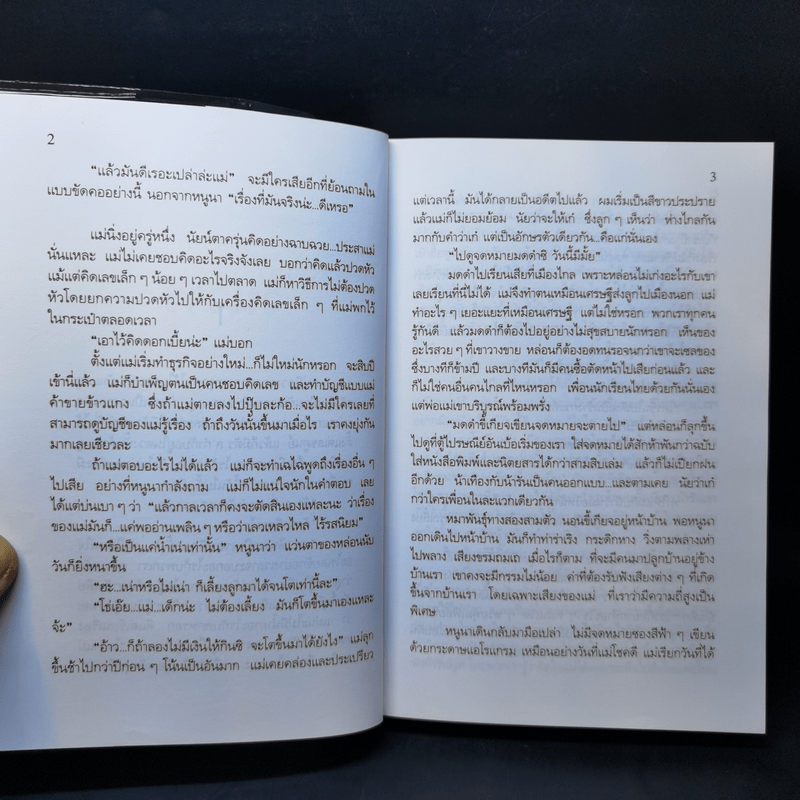 2
“แล้วมันดีเรอะเปล่าล่ะแม่” จะมีใครเสียอีกที่ย้อนถามใน
แบบขัดคออย่างนี้ นอกจากหนูนา “เรื่องที่มันจริงน่ะ...ดีเหรอ”
แม่นิ่งอยู่ครู่หนึ่ง นัยน์ตาครุ่นคิดอย่างฉาบฉวย...ประสาแม่
นั่นแหละ แม่ไม่เคยชอบคิดอะไรจริงจังเลย บอกว่าคิดแล้วปวดหัว
แม้แต่คิดเลขเล็ก ๆ น้อย ๆ เวลาไปตลาด แม่ก็หาวิธีการไม่ต้องปวด
หัวโดยยกความปวดหัวไปให้กับเครื่องคิดเลขเล็ก ๆ ที่แม่พกไว้
ในกระเป๋าตลอดเวลา
“เอาไว้คิดดอกเบี้ยน่ะ” แม่บอก
ตั้งแต่แม่เริ่มทำธุรกิจอย่างใหม่...ก็ไม่ใหม่นักหรอก จะสิบปี
เข้านี่แล้ว แม่ก็บำเพ็ญตนเป็นคนชอบคิดเลข และทำบัญชีแบบแม่
ค้าขายข้าวแกง ซึ่งถ้าแม่ตายลงไปปุ๊บละก้อ...จะไม่มีใครเลยที่
สามารถดูบัญชีของแม่รู้เรื่อง ถ้าถึงวันนั้นขึ้นมาเมื่อไร เราคงยุ่งกัน
มากเลยเชียวละ
ถ้าแม่ตอบอะไรไม่ได้แล้ว แม่ก็จะทำเฉไฉพูดถึงเรื่องอื่น ๆ
ไปเสีย อย่างที่หนูนากำลังถาม แม่ก็ไม่แน่ใจนักในคำตอบ เลย
ได้แต่บ่นเบา ๆ ว่า “แล้วกาลเวลาก็คงจะตัดสินเองแหละนะ ว่าเรื่อง
ของแม่มันก็...แค่พออ่านเพลิน ๆ หรือว่าเลวเหลวไหล ไร้รสนิยม”
“หรือเป็นแค่น้ำเน่าเท่านั้น” หนูนาว่า แว่นตาของหล่อนนับ
วันก็ยิ่งหนาขึ้น
“ฮะ...เน่าหรือไม่เน่า ก็เลี้ยงลูกมาได้จนโตเท่านี้ละ”
“โซ่เอ๊ย...แม่...เด็กน่ะ ไม่ต้องเลี้ยง มันก็โตขึ้นมาเองแหละ
จ้ะ”
“อ้าว...ก็ถ้าลองไม่มีเงินให้กินซิ จะโตขึ้นมาได้ยังไง” แม่ลุก
ขึ้นช้าไปกว่าปีก่อน ๆ โน้นเป็นอันมาก แม่เคยคล่องและประเปรียว
3
แต่เวลานี้ มันได้กลายเป็นอดีตไปแล้ว ผมเริ่มเป็นสีขาวประปราย
แล้วแม่ก็ไม่ยอมย้อม นัยว่าจะให้เก๋ ซึ่งลูก ๆ เห็นว่า ห่างไกลกัน
มากกับคำว่าเก๋ แต่เป็นอักษรตัวเดียวกัน...คือแก่นั่นเอง
“ไปดูจดหมายมดดำซิ วันนี้มีมั้ย”
มดดำไปเรียนเสียที่เมืองไกล เพราะหล่อนไม่เก่งอะไรกับเขา
เลยเรียนที่นี่ไม่ได้ แม่จึงทำตนเหมือนเศรษฐีส่งลูกไปเมืองนอก แม่
ทำอะไร ๆ เยอะแยะที่เหมือนเศรษฐี แต่ไม่ใช่หรอก พวกเราทุกคน
รู้กันดี แล้วมดดำก็ต้องไปอยู่อย่างไม่สุขสบายนักหรอก เห็นของ
อะไรสวย ๆ ที่เขาวางขาย หล่อนก็ต้องอดทนรอจนกว่าเขาจะเซลของ
ซึ่งบางทีก็ข้ามปี และบางทีมันก็มีคนซื้อตัดหน้าไปเสียก่อนแล้ว และ
ก็ไม่ใช่คนอื่นคนไกลที่ไหนหรอก เพื่อนนักเรียนไทยด้วยกันนั่นเอง
แต่พ่อแม่เขาบริบูรณ์พร้อมพรั่ง
“มดดำขี้เกียจเขียนจดหมายจะตายไป” แต่หล่อนก็ลุกขึ้น
ไปดูที่ตู้ไปรษณีย์อันเบ้อเริ่มของเรา ใส่จดหมายได้สักห้าพันกว่าฉบับ
ใส่หนังสือพิมพ์และนิตยสารได้กว่าสามสิบเล่ม แล้วก็ไม่เปียกฝน
อีกด้วย น้าเทืองกับน้ารันเป็นคนออกแบบ...และตามเคย นัยว่าเก๋
กว่าใครเพื่อนในละแวกเดียวกัน
หมาพันธุ์ทางสองสามตัว นอนขี้เกียจอยู่หน้าบ้าน พอหนูนา
ออกเดินไปหน้าบ้าน มันก็ทำท่าร่าเริง กระดิกหาง วิ่งตามพลางเห่า
ไปพลาง เสียงขรมถมเถ เมื่อไรก็ตาม ที่จะมีคนมาปลูกบ้านอยู่ข้าง
บ้านเรา เขาคงจะมีกรรมไม่น้อย ค่าที่ต้องรับฟังเสียงต่าง ๆ ที่เกิด
ขึ้นจากบ้านเรา โดยเฉพาะเสียงของแม่ ที่เราว่ามีความถี่สูงเป็น
พิเศษ
หนูนาเดินกลับมามือเปล่า ไม่มีจดหมายซองสีฟ้า ๆ เขียน
ด้วยกระดาษแอโรแกรม เหมือนอย่างวันที่แม่โชคดี แม่เรียกวันที่ได้